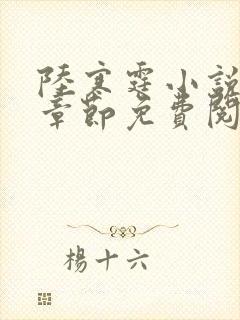 陸寒霆小說
章節免費閱
楊十六